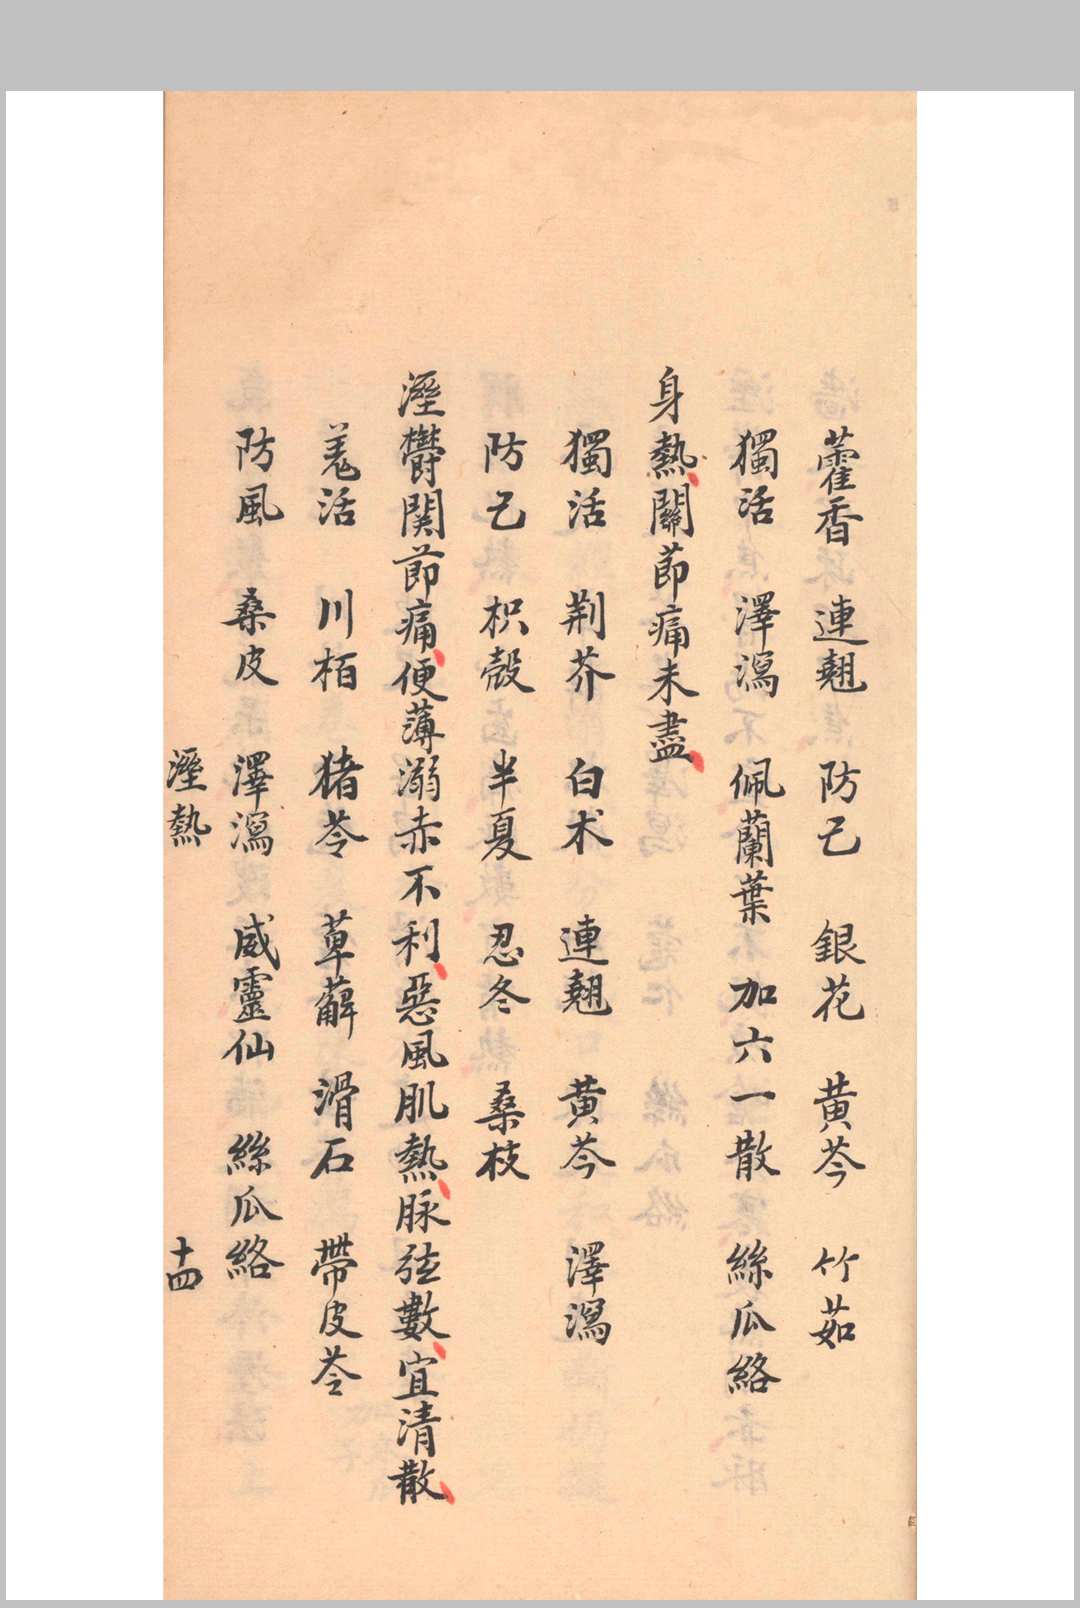 藿香 連翹 防己 銀花 黃芩 竹茹
獨活 澤瀉 佩蘭葉 加六一散 絲瓜絡
身熱、關節痛未盡、
獨活 荆芥 白术 連翹 黃芩 澤瀉
防己 枳殼 半夏 忍冬 桑枝
溼欝関節痛、便薄溺赤不利、惡風肌熱、脉弦數、宜清散、
羗活 川栢 猪苓 萆薢 滑石 帶皮苓
防風 桑皮 澤瀉 威靈仙 絲瓜絡
溼熱 十四